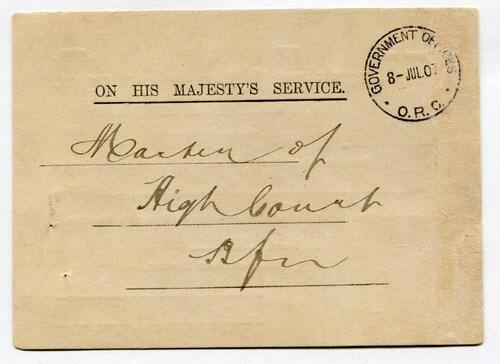 GOVERNMENT OFFICES
8-JUL.07
O.R.C.
ON HIS MAJESTY'S SERVICE.
Master of
High Court
Bfn